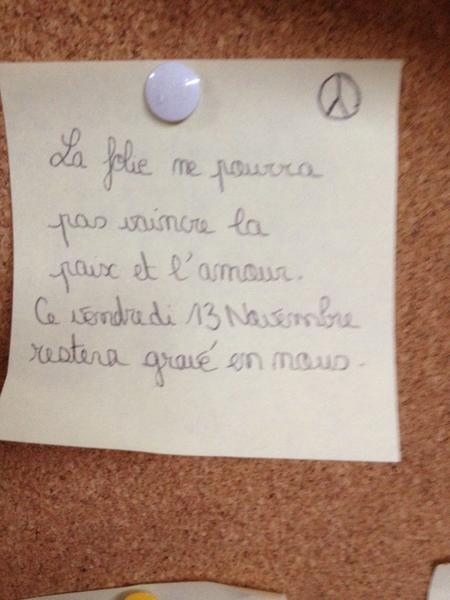 La folie ne pourra
pas vaincre la
paix et l'amour.
Ce vendredi 13 Novembre
restera gravé en nous.